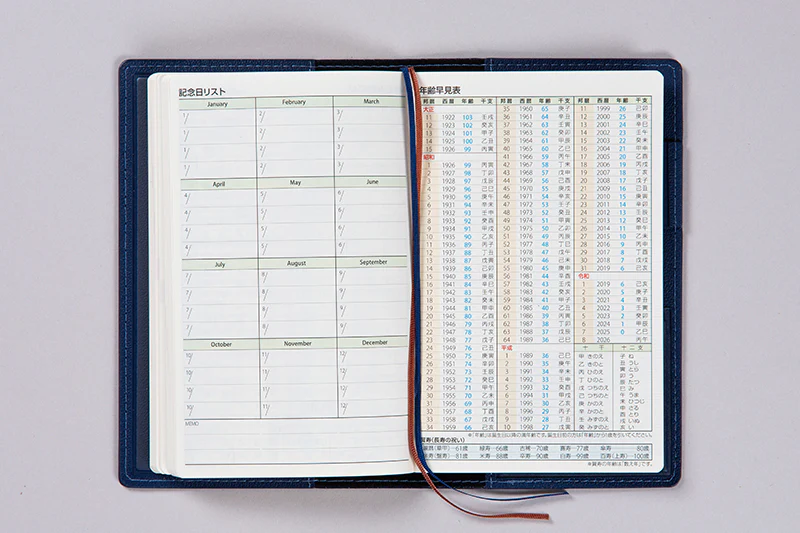 記念日リスト
January February March
1/ 2/ 3/
1/ 2/ 3/
1/ 2/ 3/
1/ 2/ 3/
April May June
4/ 5/ 6/
4/ 5/ 6/
4/ 5/ 6/
4/ 5/ 6/
July August September
7/ 8/ 9/
7/ 8/ 9/
7/ 8/ 9/
7/ 8/ 9/
October November December
10/ 11/ 12/
10/ 11/ 12/
10/ 11/ 12/
10/ 11/ 12/
MEMO
年齢早見表
邦暦 西暦 年齢 干支
大正
11 1922 103 壬戌
12 1923 102 癸亥
13 1924 101 甲子
14 1925 100 乙丑
15 1926 99 丙寅
昭和
1 1926 99 丙寅
2 1927 98 丁卯
3 1928 97 戊辰
4 1929 96 己巳
5 1930 95 庚午
6 1931 94 辛未
7 1932 93 壬申
8 1933 92 癸酉
9 1934 91 甲戌
10 1935 90 乙亥
11 1936 89 丙子
12 1937 88 丁丑
13 1938 87 戊寅
14 1939 86 己卯
15 1940 85 庚辰
16 1941 84 辛巳
17 1942 83 壬午
18 1943 82 癸未
19 1944 81 甲申
20 1945 80 乙酉
21 1946 79 丙戌
22 1947 78 丁亥
23 1948 77 戊子
24 1949 76 己丑
25 1950 75 庚寅
26 1951 74 辛卯
27 1952 73 壬辰
28 1953 72 癸巳
29 1954 71 甲午
30 1955 70 乙未
31 1956 69 丙申
32 1957 68 丁酉
33 1958 67 戊戌
34 1959 66 己亥
邦暦 西暦 年齢 干支
35 1960 65 庚子
36 1961 64 辛丑
37 1962 63 壬寅
38 1963 62 癸卯
39 1964 61 甲辰
40 1965 60 乙巳
41 1966 59 丙午
42 1967 58 丁未
43 1968 57 戊申
44 1969 56 己酉
45 1970 55 庚戌
46 1971 54 辛亥
47 1972 53 壬子
48 1973 52 癸丑
49 1974 51 甲寅
50 1975 50 乙卯
51 1976 49 丙辰
52 1977 48 丁巳
53 1978 47 戊午
54 1979 46 己未
55 1980 45 庚申
56 1981 44 辛酉
57 1982 43 壬戌
58 1983 42 癸亥
59 1984 41 甲子
60 1985 40 乙丑
61 1986 39 丙寅
62 1987 38 丁卯
63 1988 37 戊辰
64 1989 36 己巳
平成
1 1989 36 己巳
2 1990 35 庚午
3 1991 34 辛未
4 1992 33 壬申
5 1993 32 癸酉
6 1994 31 甲戌
7 1995 30 乙亥
8 1996 29 丙子
9 1997 28 丁丑
10 1998 27 戊寅
邦暦 西暦 年齢 干支
11 1999 26 己卯
12 2000 25 庚辰
13 2001 24 辛巳
14 2002 23 壬午
15 2003 22 癸未
16 2004 21 甲申
17 2005 20 乙酉
18 2006 19 丙戌
19 2007 18 丁亥
20 2008 17 戊子
21 2009 16 己丑
22 2010 15 庚寅
23 2011 14 辛卯
24 2012 13 壬辰
25 2013 12 癸巳
26 2014 11 甲午
27 2015 10 乙未
28 2016 9 丙申
29 2017 8 丁酉
30 2018 7 戊戌
31 2019 6 己亥
令和
1 2019 6 己亥
2 2020 5 庚子
3 2021 4 辛丑
4 2022 3 壬寅
5 2023 2 癸卯
6 2024 1 甲辰
7 2025 0 乙巳
8 2026 丙午
十干
甲 きのえ
乙 きのと
丙 ひのえ
丁 ひのと
戊 つちのえ
己 つちのと
庚 かのえ
辛 かのと
壬 みずのえ
癸 みずのと
十二支
子 ね
丑 うし
寅 とら
卯 う
辰 たつ
巳 み
午 うま
未 ひつじ
申 さる
酉 とり
戌 いぬ
亥 い
※「年齢」は誕生日以降の満年齢です。誕生日前の方は「年齢」から1歳を引いてください。
賀寿(長寿の祝い)
61歳 緑寿…66歳 古稀…70歳 喜寿…77歳 傘寿…80歳
81歳 米寿…88歳 卒寿…90歳 白寿…99歳 百寿(上寿)…100歳
※賀寿の年齢は「数え年」です。